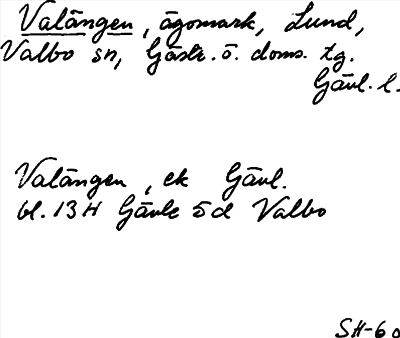 Valängen, ägomark, Lund,
Valbo sn, Gästr. ö. doms. tg.
Gävl. l.
Valängen, ek Gävl.
bl. 13 H Gävle öd Valbo
SH-60